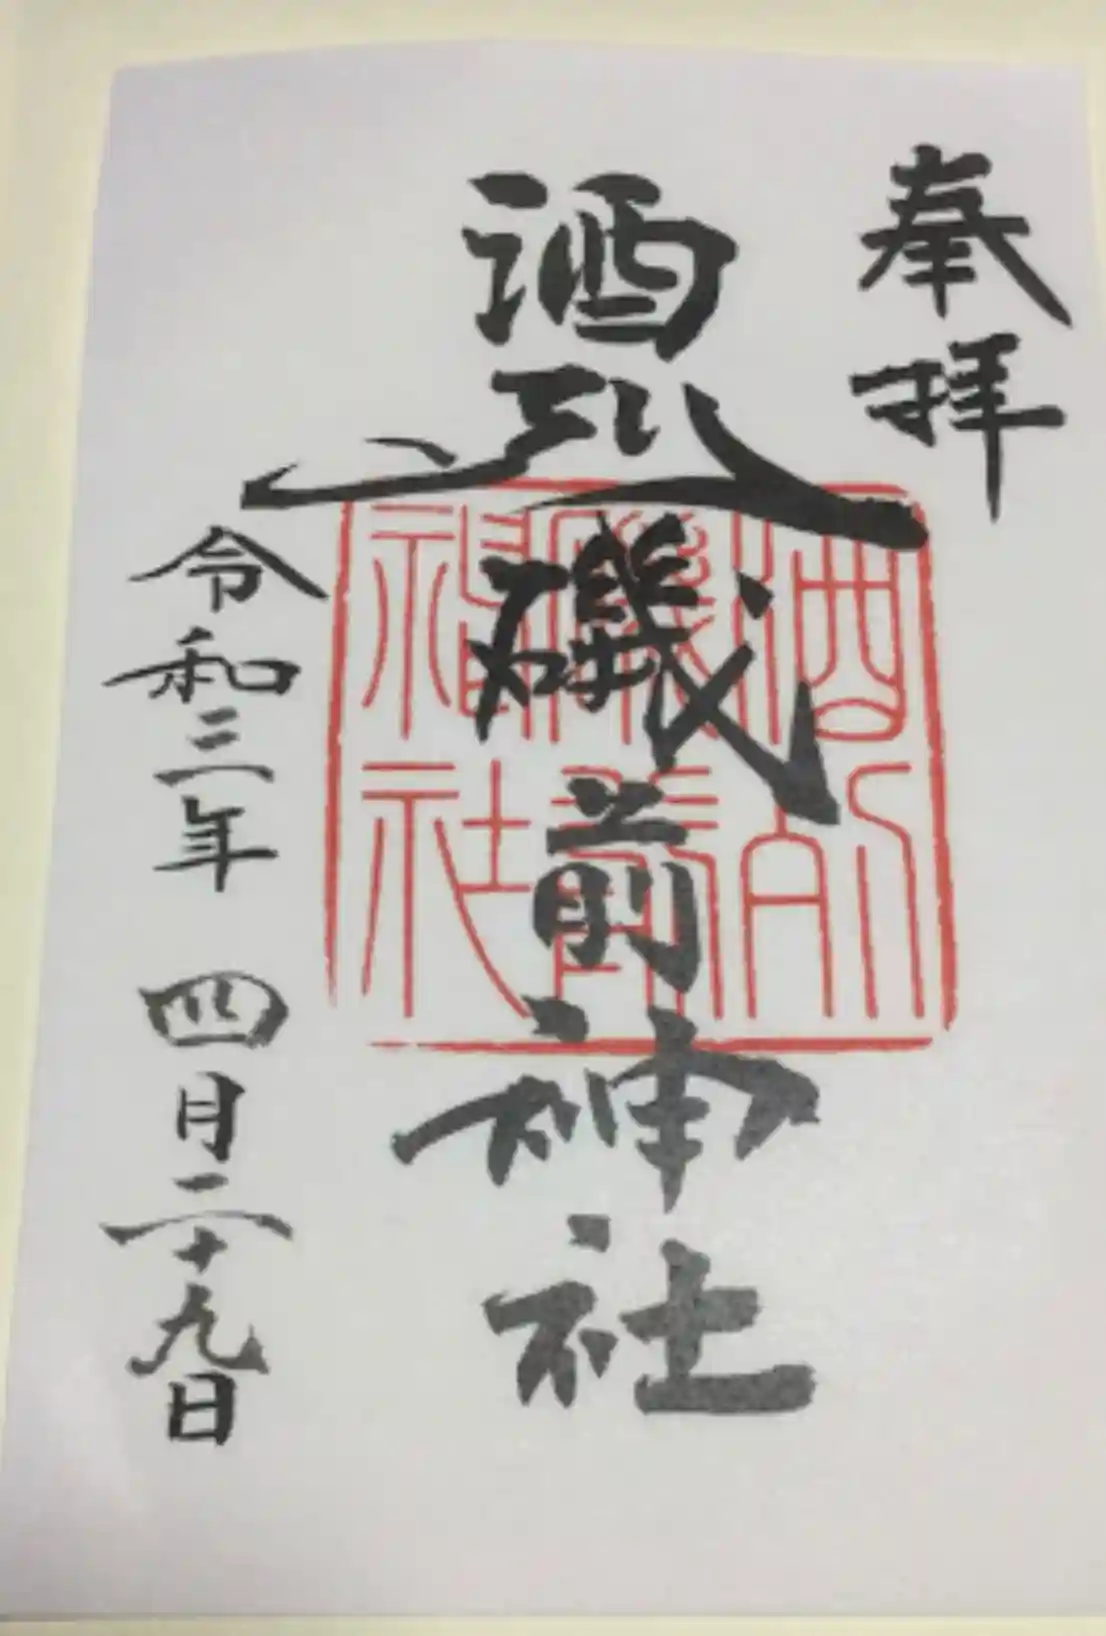 奉拝
酒列磯前神社
令和三年 四月二十九日
酒列
磯前
神社